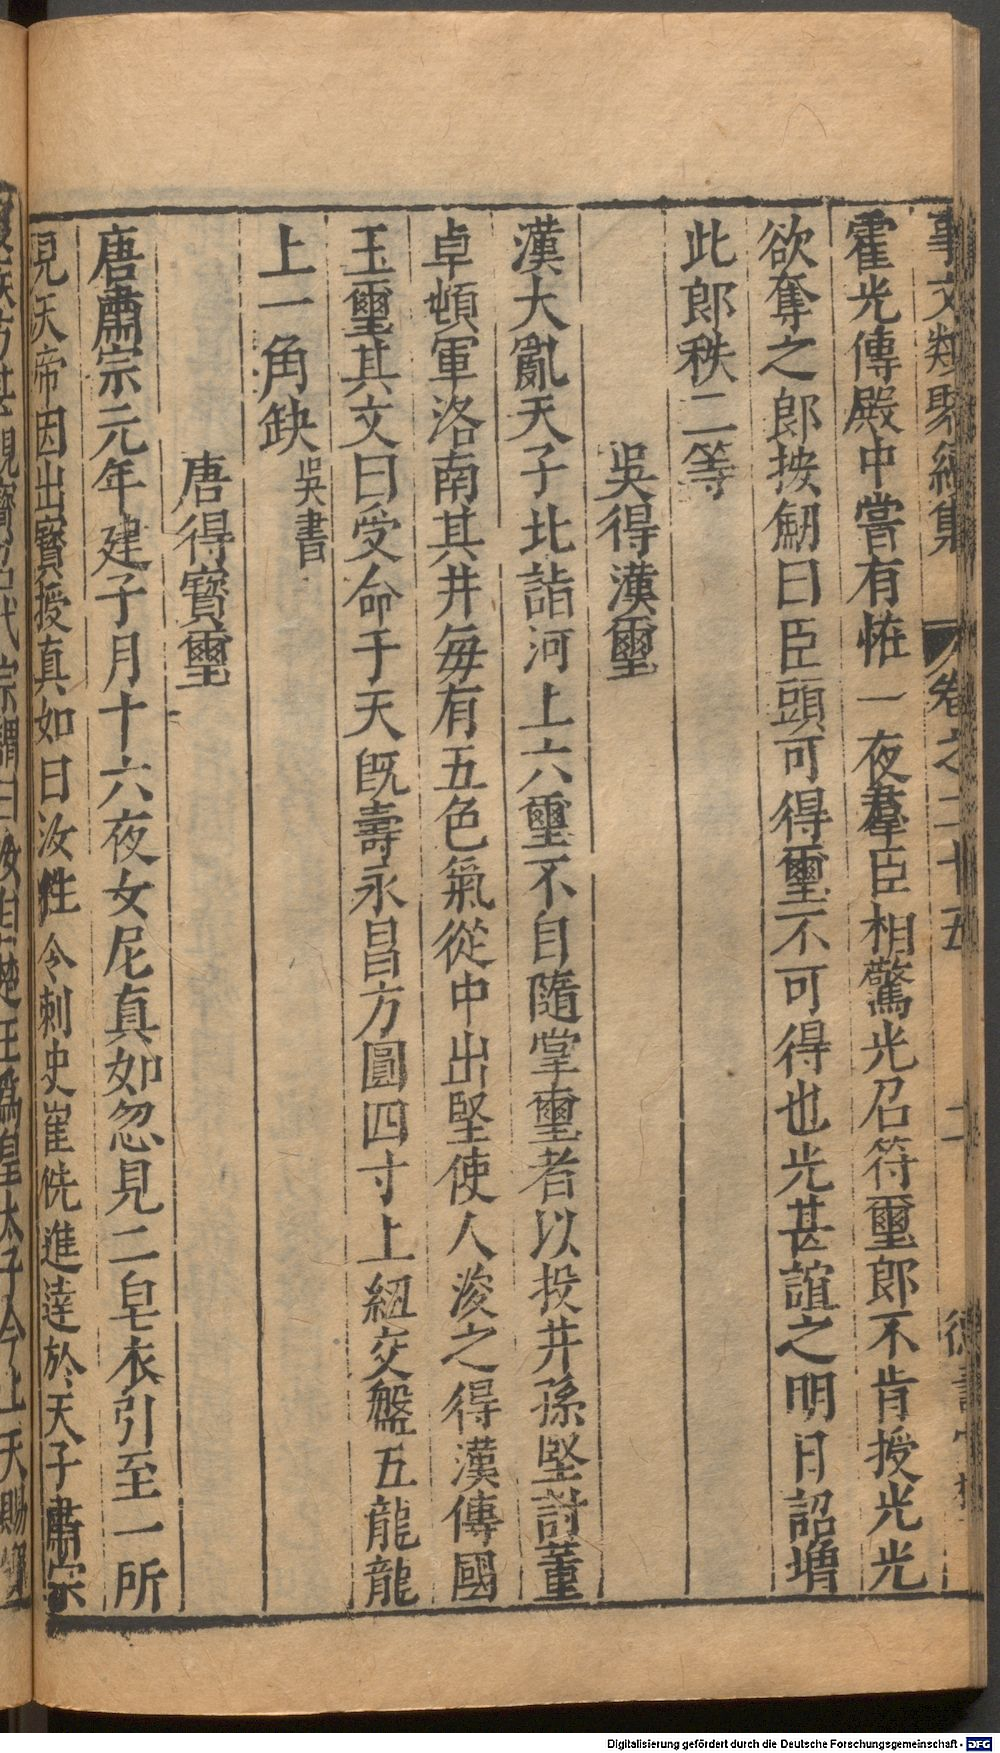 事文類聚續集　卷之二十五　二
霍光傳殿中嘗有恠一夜羣臣相驚光召符璽郎不肯授光光
欲奪之郎按劒曰臣頭可得璽不可得也光甚誼之明日詔增
此郎秩二等
吳得漢璽
漢大亂天子北詣河上六璽不自隨掌璽者以投井孫堅討董
卓頓軍洛南其井每有五色氣從中出堅使人浚之得漢傳國
玉璽其文曰受命于天旣壽永昌方圓四寸上紐交盤五龍龍
上一角缺吳書
唐得寳璽
唐肅宗元年建子月十六夜女尼真如忽見二皂衣引至一所
見天帝因出寳授真如曰汝往令刺史崔侁進達於天子肅宗
代宗謂曰汝自楚王爲皇太子今上天賜
Digitalisierung gefördert durch die Deutsche Forschungsgemeinschaft - DFG